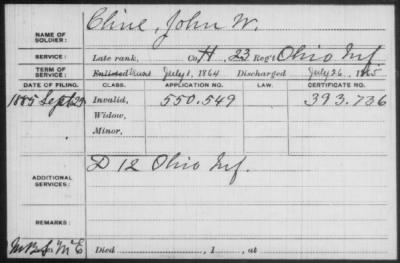 NAME OF SOLDIER: Cline, John W.
SERVICE: Late rank, Co. H, 23 Reg't Ohio Inf
TERM OF SERVICE: Enlisted July 1, 1864 Discharged July 26, 1865
DATE OF FILING. CLASS. APPLICATION NO. LAW. CERTIFICATE NO.
1885 Sept 29 Invalid, 550.549 393.736
Widow,
Minor,
ADDITIONAL SERVICES: D 12 Ohio Inf.
REMARKS:
Died , 1 , at